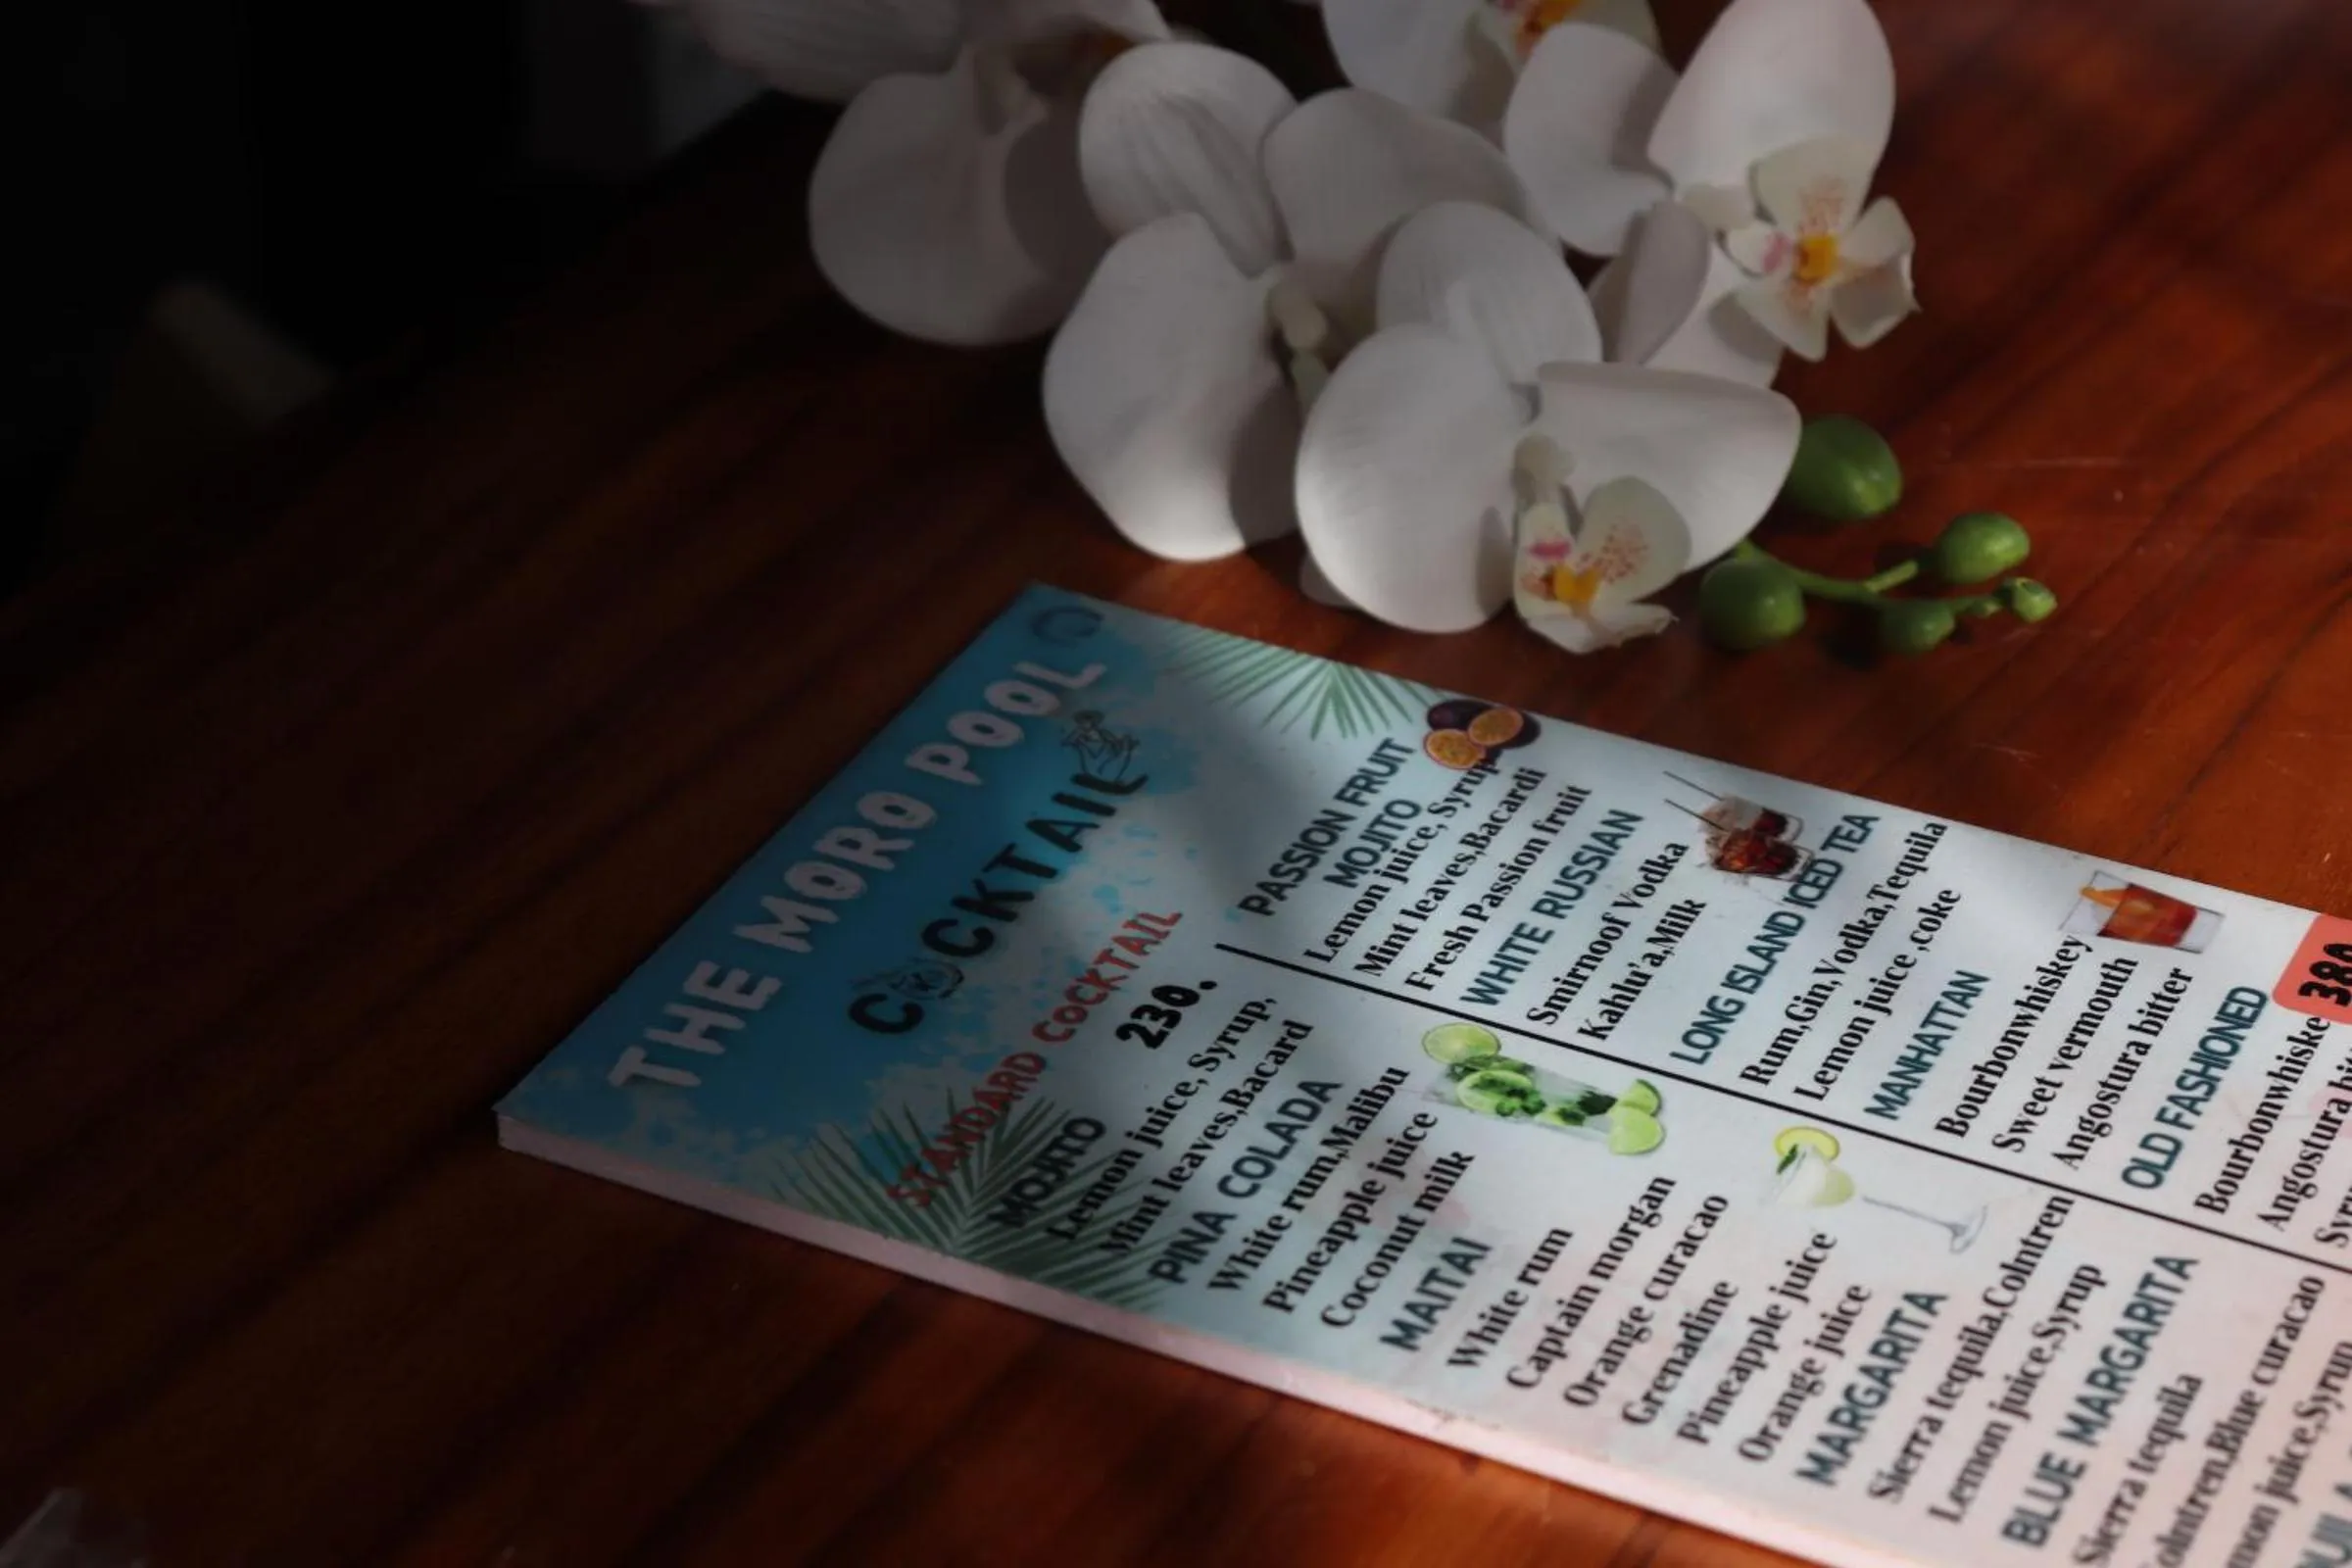 THE MORO POOL
COCKTAIL
STANDARD COCKTAIL
230.
MOJITO
Lemon juice, Syrup,
Mint leaves,Bacard
PINA COLADA
White rum,Malibu
Pineapple juice
Coconut milk
MAITAI
White rum
Captain morgan
Orange curacao
Grenadine
Pineapple juice
Orange juice
MARGARITA
Sierra tequila,Colntren
Lemon juice,Syrup
BLUE MARGARITA
Sierra tequila
Blue curacao
juice,Syrup
PASSION FRUIT
MOJITO
Lemon juice, Syrup
Mint leaves,Bacardi
Fresh Passion fruit
WHITE RUSSIAN
Smirnoof Vodka
Kahlu'a,Milk
LONG ISLAND ICED TEA
Rum,Gin,Vodka,Tequila
Lemon juice ,coke
MANHATTAN
Bourbonwhiskey
Sweet vermouth
Angostura bitter
OLD FASHIONED
Bourbonwhiske
Angostura
380